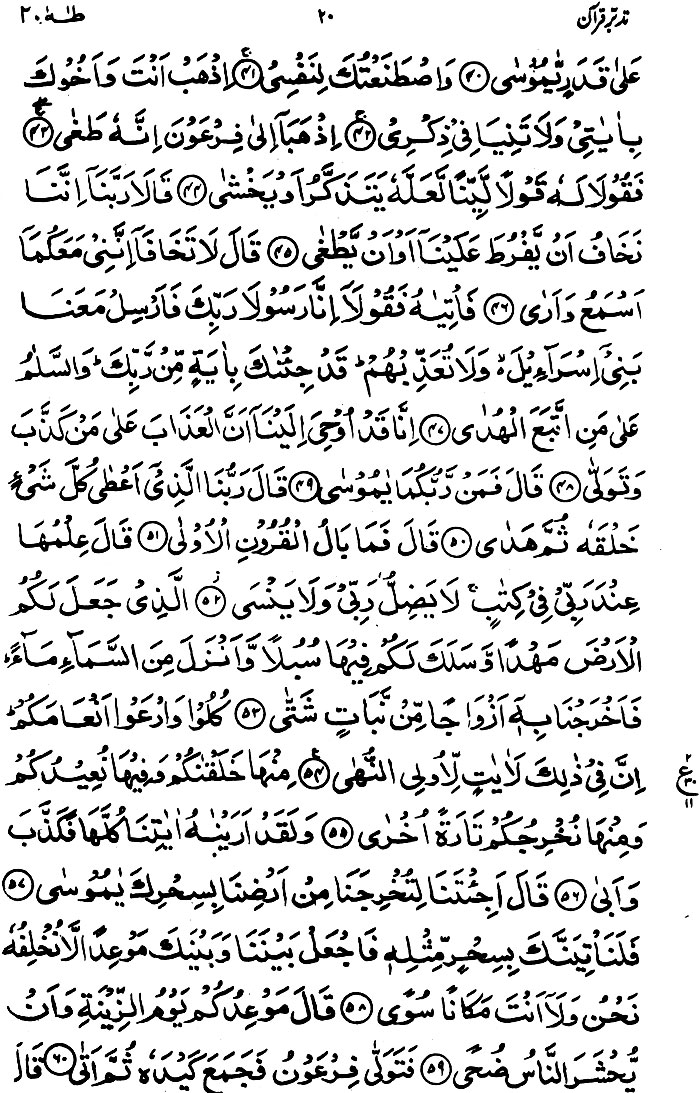 تدبر قرآن ۲۰ طٰهٰ ۲۰
عَلٰى قَدَرٍ يّٰمُوْسٰى ۴۰ وَاصْطَنَعْتُكَ لِنَفْسِىْ ۴۱ اِذْهَبْ اَنْتَ وَاَخُوْكَ
بِاٰيٰتِىْ وَلَا تَنِيَا فِىْ ذِكْرِىْ ۴۲ اِذْهَبَآ اِلٰى فِرْعَوْنَ اِنَّهٗ طَغٰى ۴۳
فَقُوْلَا لَهٗ قَوْلًا لَّيِّنًا لَّعَلَّهٗ يَتَذَكَّرُ اَوْ يَخْشٰى ۴۴ قَالَا رَبَّنَآ اِنَّنَا
نَخَافُ اَنْ يَّفْرُطَ عَلَيْنَآ اَوْ اَنْ يَّطْغٰى ۴۵ قَالَ لَا تَخَافَآ اِنَّنِىْ مَعَكُمَا
اَسْمَعُ وَاَرٰى ۴۶ فَاْتِيٰهُ فَقُوْلَآ اِنَّا رَسُوْلَا رَبِّكَ فَاَرْسِلْ مَعَنَا
بَنِىْٓ اِسْرَآءِيْلَ ۙ وَلَا تُعَذِّبْهُمْ ؕ قَدْ جِئْنٰكَ بِاٰيَةٍ مِّنْ رَّبِّكَ ؕ وَالسَّلٰمُ
عَلٰى مَنِ اتَّبَعَ الْهُدٰى ۴۷ اِنَّا قَدْ اُوْحِىَ اِلَيْنَآ اَنَّ الْعَذَابَ عَلٰى مَنْ كَذَّبَ
وَتَوَلّٰى ۴۸ قَالَ فَمَنْ رَّبُّكُمَا يٰمُوْسٰى ۴۹ قَالَ رَبُّنَا الَّذِىْٓ اَعْطٰى كُلَّ شَىْءٍ
خَلْقَهٗ ثُمَّ هَدٰى ۵۰ قَالَ فَمَا بَالُ الْقُرُوْنِ الْاُوْلٰى ۵۱ قَالَ عِلْمُهَا
عِنْدَ رَبِّىْ فِىْ كِتٰبٍ ۚ لَا يَضِلُّ رَبِّىْ وَلَا يَنْسَى ۵۲ الَّذِىْ جَعَلَ لَكُمُ
الْاَرْضَ مَهْدًا وَّسَلَكَ لَكُمْ فِيْهَا سُبُلًا وَّاَنْزَلَ مِنَ السَّمَآءِ مَآءً ؕ
فَاَخْرَجْنَا بِهٖٓ اَزْوَاجًا مِّنْ نَّبَاتٍ شَتّٰى ۵۳ كُلُوْا وَارْعَوْا اَنْعَامَكُمْ ؕ
اِنَّ فِىْ ذٰلِكَ لَاٰيٰتٍ لِّاُولِى النُّهٰى ۵۴ مِنْهَا خَلَقْنٰكُمْ وَفِيْهَا نُعِيْدُكُمْ
وَمِنْهَا نُخْرِجُكُمْ تَارَةً اُخْرٰى ۵۵ وَلَقَدْ اَرَيْنٰهُ اٰيٰتِنَا كُلَّهَا فَكَذَّبَ
وَاَبٰى ۵۶ قَالَ اَجِئْتَنَا لِتُخْرِجَنَا مِنْ اَرْضِنَا بِسِحْرِكَ يٰمُوْسٰى ۵۷
فَلَنَاْتِيَنَّكَ بِسِحْرٍ مِّثْلِهٖ فَاجْعَلْ بَيْنَنَا وَبَيْنَكَ مَوْعِدًا لَّا نُخْلِفُهٗ
نَحْنُ وَلَآ اَنْتَ مَكَانًا سُوًى ۵۸ قَالَ مَوْعِدُكُمْ يَوْمُ الزِّيْنَةِ وَاَنْ
يُّحْشَرَ النَّاسُ ضُحًى ۵۹ فَتَوَلّٰى فِرْعَوْنُ فَجَمَعَ كَيْدَهٗ ثُمَّ اَتٰى ۶۰ قَالَ